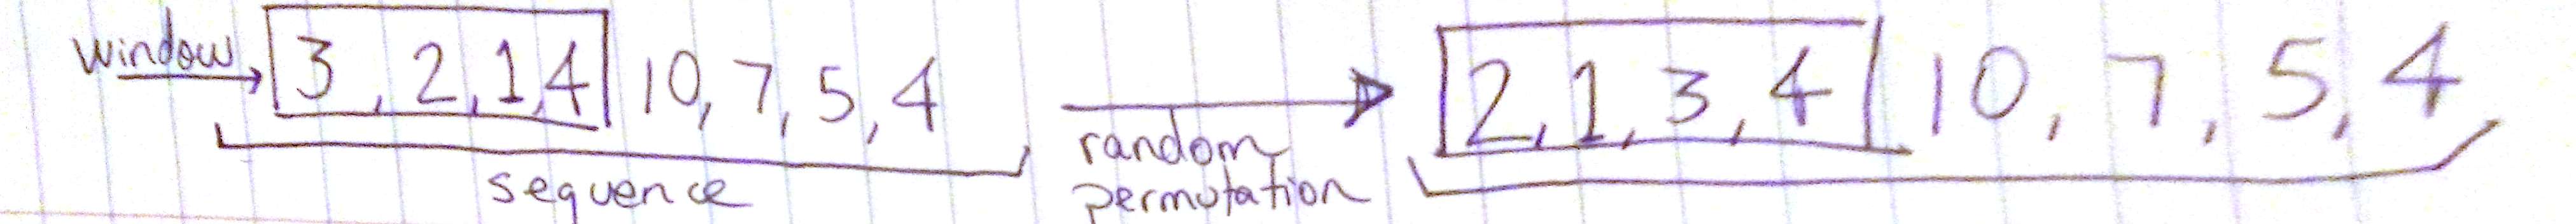 window 3, 2, 1, 4 10, 7, 5, 4
sequence
random
permutation
2, 1, 3, 4 10, 7, 5, 4